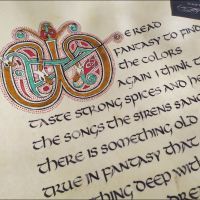 WE READ
FANTASY TO FIND
THE COLORS
AGAIN I THINK T
TASTE STRONG SPICES AND H
THE SONGS THE SIRENS SAN
THERE IS SOMETHING OLD
TRUE IN FANTASY THAT
THING DEEP WITH